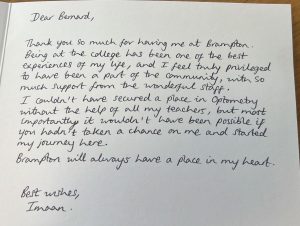 Dear Bernard,
Thank you so much for having me at Brampton.
Being at the college has been one of the best
experiences of my life, and I feel truly privileged
to have been a part of the community, with so
much support from the wonderful staff.
I couldn't have secured a place in Optometry
without the help of all my teachers, but most
importantly it wouldn't have been possible if
you hadn't taken a chance on me and started
my journey here.
Brampton will always have a place in my heart.
Best wishes,
Imaan.